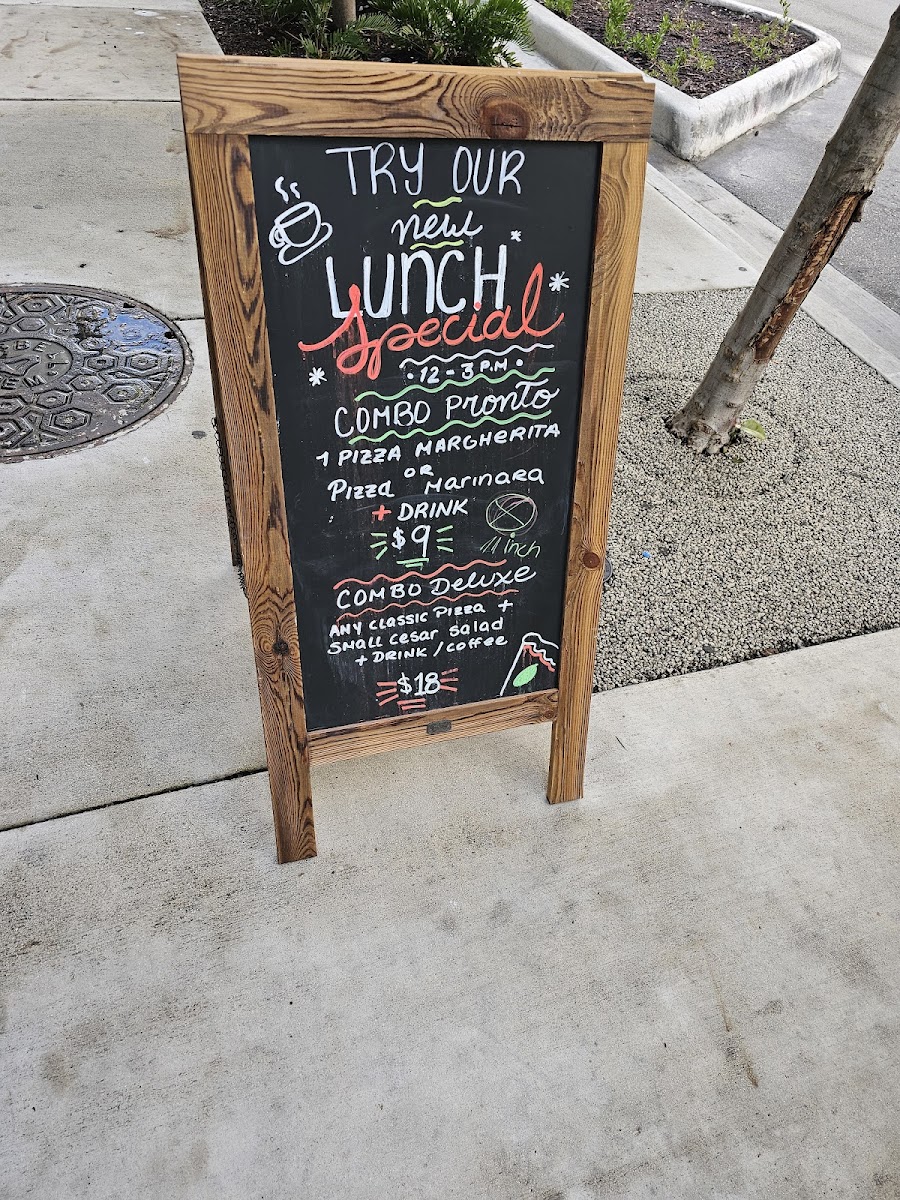 TRY OUR
new
LUNCH
Special
· 12 - 3 P.M ·
COMBO Pronto
1 PIZZA MARGHERITA
OR
Pizza Marinara
+ DRINK
$9
11 inch
COMBO Deluxe
ANY CLASSIC PIZZA +
SMALL Cesar Salad
+ DRINK / coffee
$18